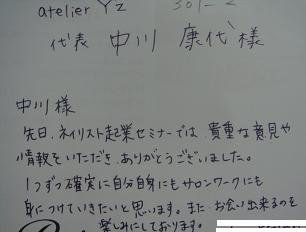 atelier Yz 301-2
代表 中川 康代様
中川様
先日、ネイリスト起業セミナーでは、貴重な意見や
情報をいただき、ありがとうございました。
1つずつ確実に自分自身にもサロンワークにも
身につけていきたいと思います。また お会い出来るのを
楽しみにしております。